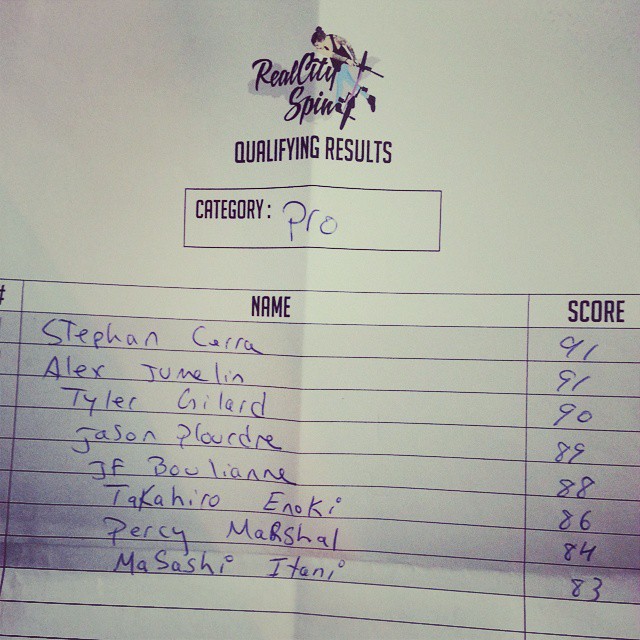 Real City
Spin
QUALIFYING RESULTS
CATEGORY: Pro
# NAME SCORE
Stephan Cerra 91
Alex Jumelin 91
Tyler Gilard 90
Jason Plourdre 89
JF Boulianne 88
Takahiro Enoki 86
Percy Marshal 84
Masashi Itani 83